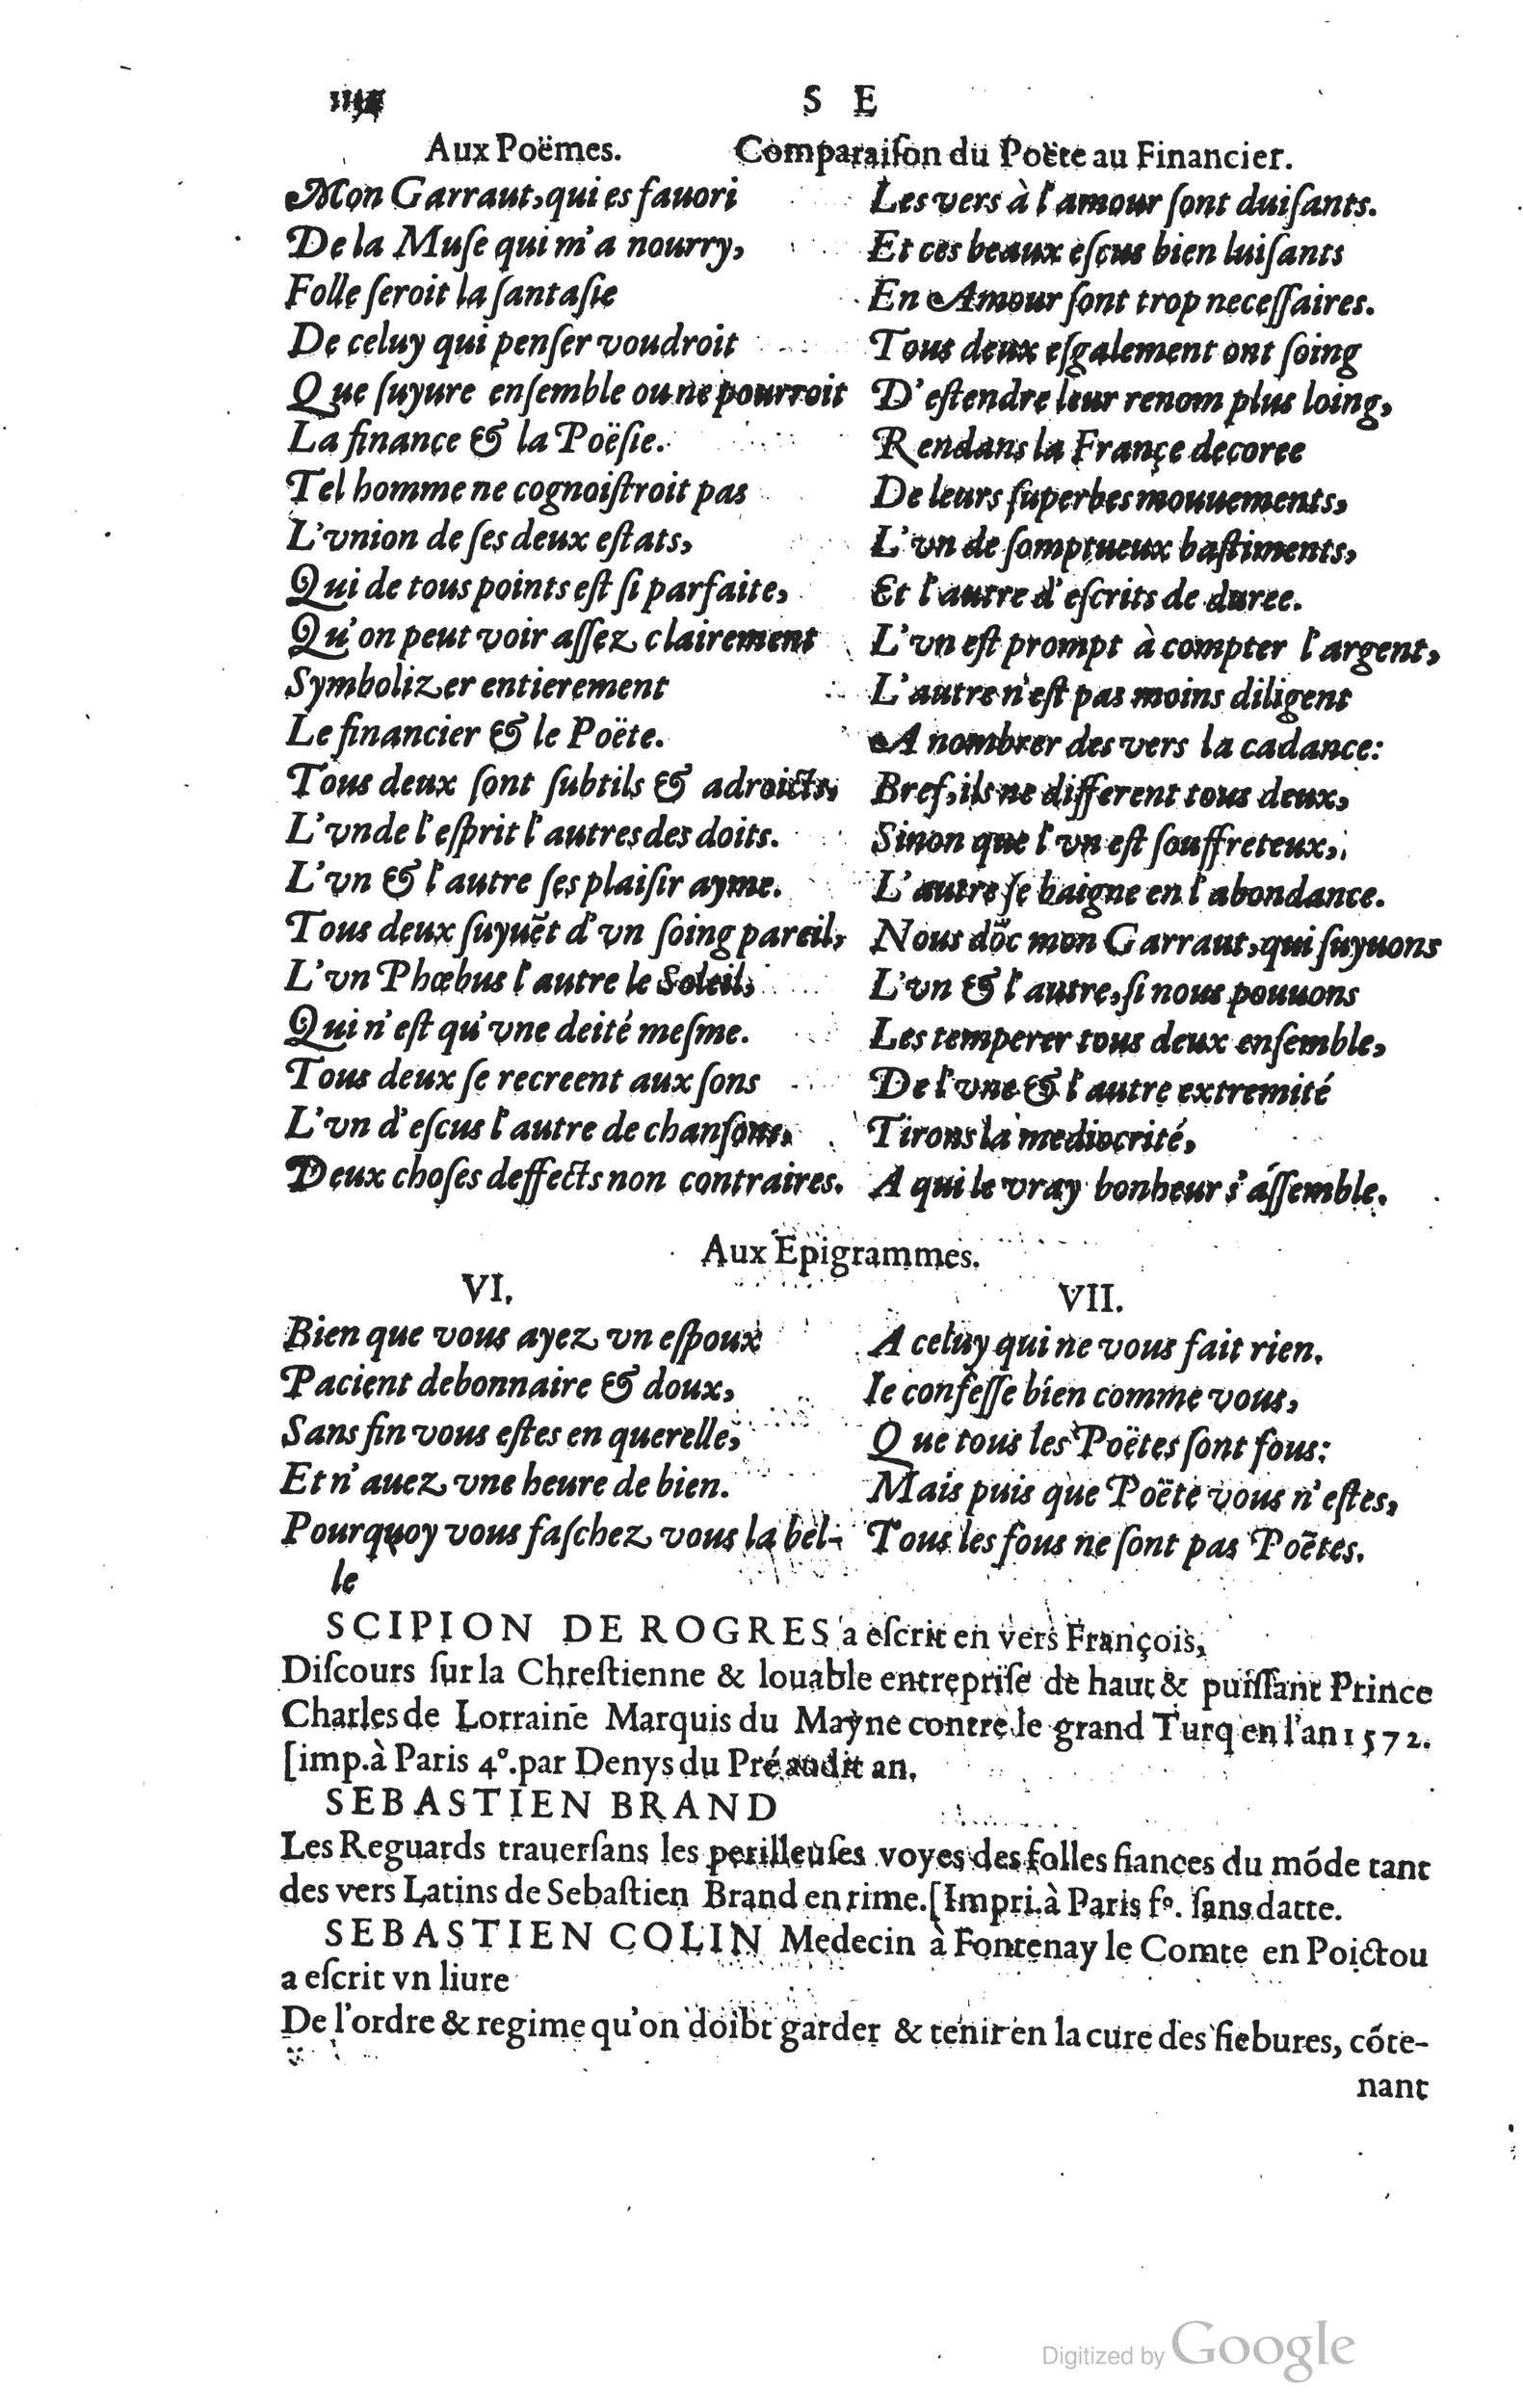 S E
Aux Poëmes. Comparaiſon du Poëte au Financier.
Mon Garraut, qui es fauori
De la Muſe qui m'a nourry,
Folle ſeroit la ſantaſie
De celuy qui penſer voudroit
Que ſuyure enſemble ou ne pourroit
La finance & la Poëſie.
Tel homme ne cognoiſtroit pas
L'vnion de ſes deux eſtats,
Qui de tous points eſt ſi parfaite,
Qu'on peut voir aſſez clairement
Symbolizer entierement
Le financier & le Poëte.
Tous deux ſont ſubtils & adroicts,
L'vn de l'eſprit l'autres des doits.
L'vn & l'autre ſes plaiſir ayme.
Tous deux ſuyuẽt d'vn ſoing pareil,
L'vn Phœbus l'autre le Soleil,
Qui n'eſt qu'vne deité meſme.
Tous deux ſe recreent aux ſons
L'vn d'eſcus l'autre de chanſons,
Deux choſes deffects non contraires.
Les vers à l'amour ſont duiſants.
Et ces beaux eſcus bien luiſants
En Amour ſont trop neceſſaires.
Tous deux eſgalement ont ſoing
D'eſtendre leur renom plus loing,
Rendans la France decoree
De leurs ſuperbes mouuements,
L'vn de ſomptueux baſtiments,
Et l'autre d'eſcrits de duree.
L'vn eſt prompt à compter l'argent,
L'autre n'eſt pas moins diligent
A nombrer des vers la cadance:
Bref, ils ne different tous deux,
Sinon que l'vn eſt ſouffreteux,
L'autre ſe baigne en l'abondance.
Nous dõc mon Garraut, qui ſuyuons
L'vn & l'autre, ſi nous pouuons
Les temperer tous deux enſemble,
De l'vne & l'autre extremité
Tirons la mediocrité,
A qui le vray bonheur s'aſſemble.
Aux Epigrammes.
VI.
Bien que vous ayez vn eſpoux
Pacient debonnaire & doux,
Sans fin vous eſtes en querelle,
Et n'auez vne heure de bien.
Pourquoy vous faſchez vous la bel-
le
A celuy qui ne vous fait rien.
VII.
Ie confeſſe bien comme vous,
Que tous les Poëtes ſont fous:
Mais puis que Poëte vous n'eſtes,
Tous les fous ne ſont pas Poëtes.
SCIPION DE ROGRES a eſcrit en vers François,
Diſcours ſur la Chreſtienne & louable entrepriſe de haut & puiſſant Prince
Charles de Lorraine Marquis du Mayne contre le grand Turq en l'an 1572.
[imp. à Paris 4°. par Denys du Pré audit an.
SEBASTIEN BRAND
Les Reguards trauerſans les perilleuſes voyes des folles fiances du mõde tant
des vers Latins de Sebaſtien Brand en rime. [Impri. à Paris f°. ſans datte.
SEBASTIEN COLIN Medecin à Fontenay le Comte en Poictou
a eſcrit vn liure
De l'ordre & regime qu'on doibt garder & tenir en la cure des fiebures, cõte-
nant
Digitized by Google